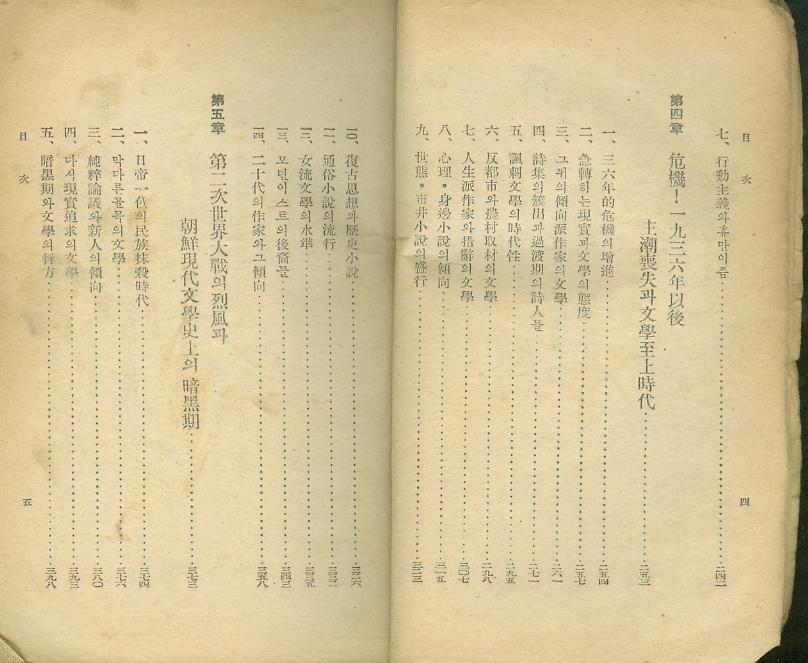 目次
七、行動主義와휴맨이즘 二四二
第四章 危機! 一九三六年以後
主潮喪失과文學至上時代 二五三
一、三六年的危機의增進 二五四
二、急轉하는現實과文學의態度 二五七
三、그뒤의傾向派作家의文學 二六一
四、詩集의簇出과過渡期의詩人들 二七一
五、諷刺文學의時代性 二九五
六、反都市와農村取材의文學 二九八
七、人生派作家와措辭의文學 三〇七
八、心理・身邊小說의傾向 三一五
九、世態・市井小說의盛行 三二三
四
一〇、復古思想과歷史小說 三二六
一一、通俗小說의流行
一二、女流文學의水準 三三五
一三、모던이스트의後裔들 三四三
一四、二十代의作家와그傾向 三五八
第五章 第二次世界大戰의烈風과
朝鮮現代文學史上의 暗黑期 三七三
一、日帝一代의民族抹殺時代 三七四
二、막다른골목의文學 三七六
三、純粹論議와新人의傾向 三八〇
四、다시現實追求의文學 三九三
五、暗黑期와文學의行方 三九八
目次
五